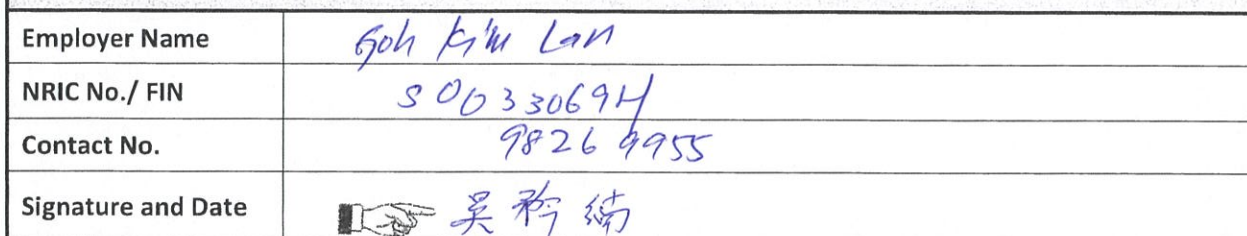 Employer Name Goh Kim Lan
NRIC No./ FIN S0033069H
Contact No. 9826 9955
Signature and Date 吴矜